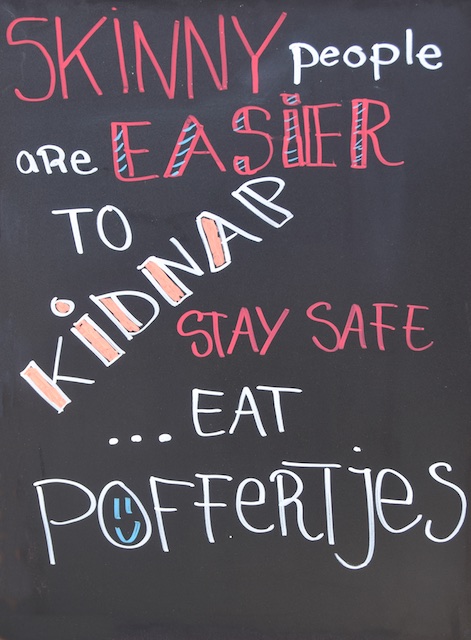 SKINNY people
are EASIER
TO
KIDNAP
STAY SAFE
... EAT
POFFERTJES